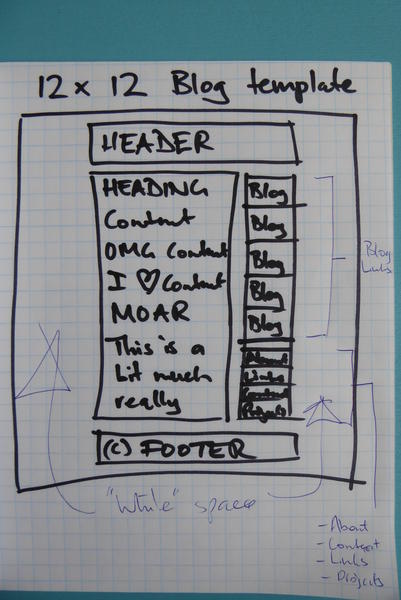 12 x 12 Blog template
HEADER
HEADING
Content
OMG Content
I ♡ Content
MOAR
This is a
bit much
really
Blog
Blog
Blog
Blog
Blog
About
Links
Content
Projects
(c) FOOTER
Blog
Links
"White" space
- About
- Content
- Links
- Projects